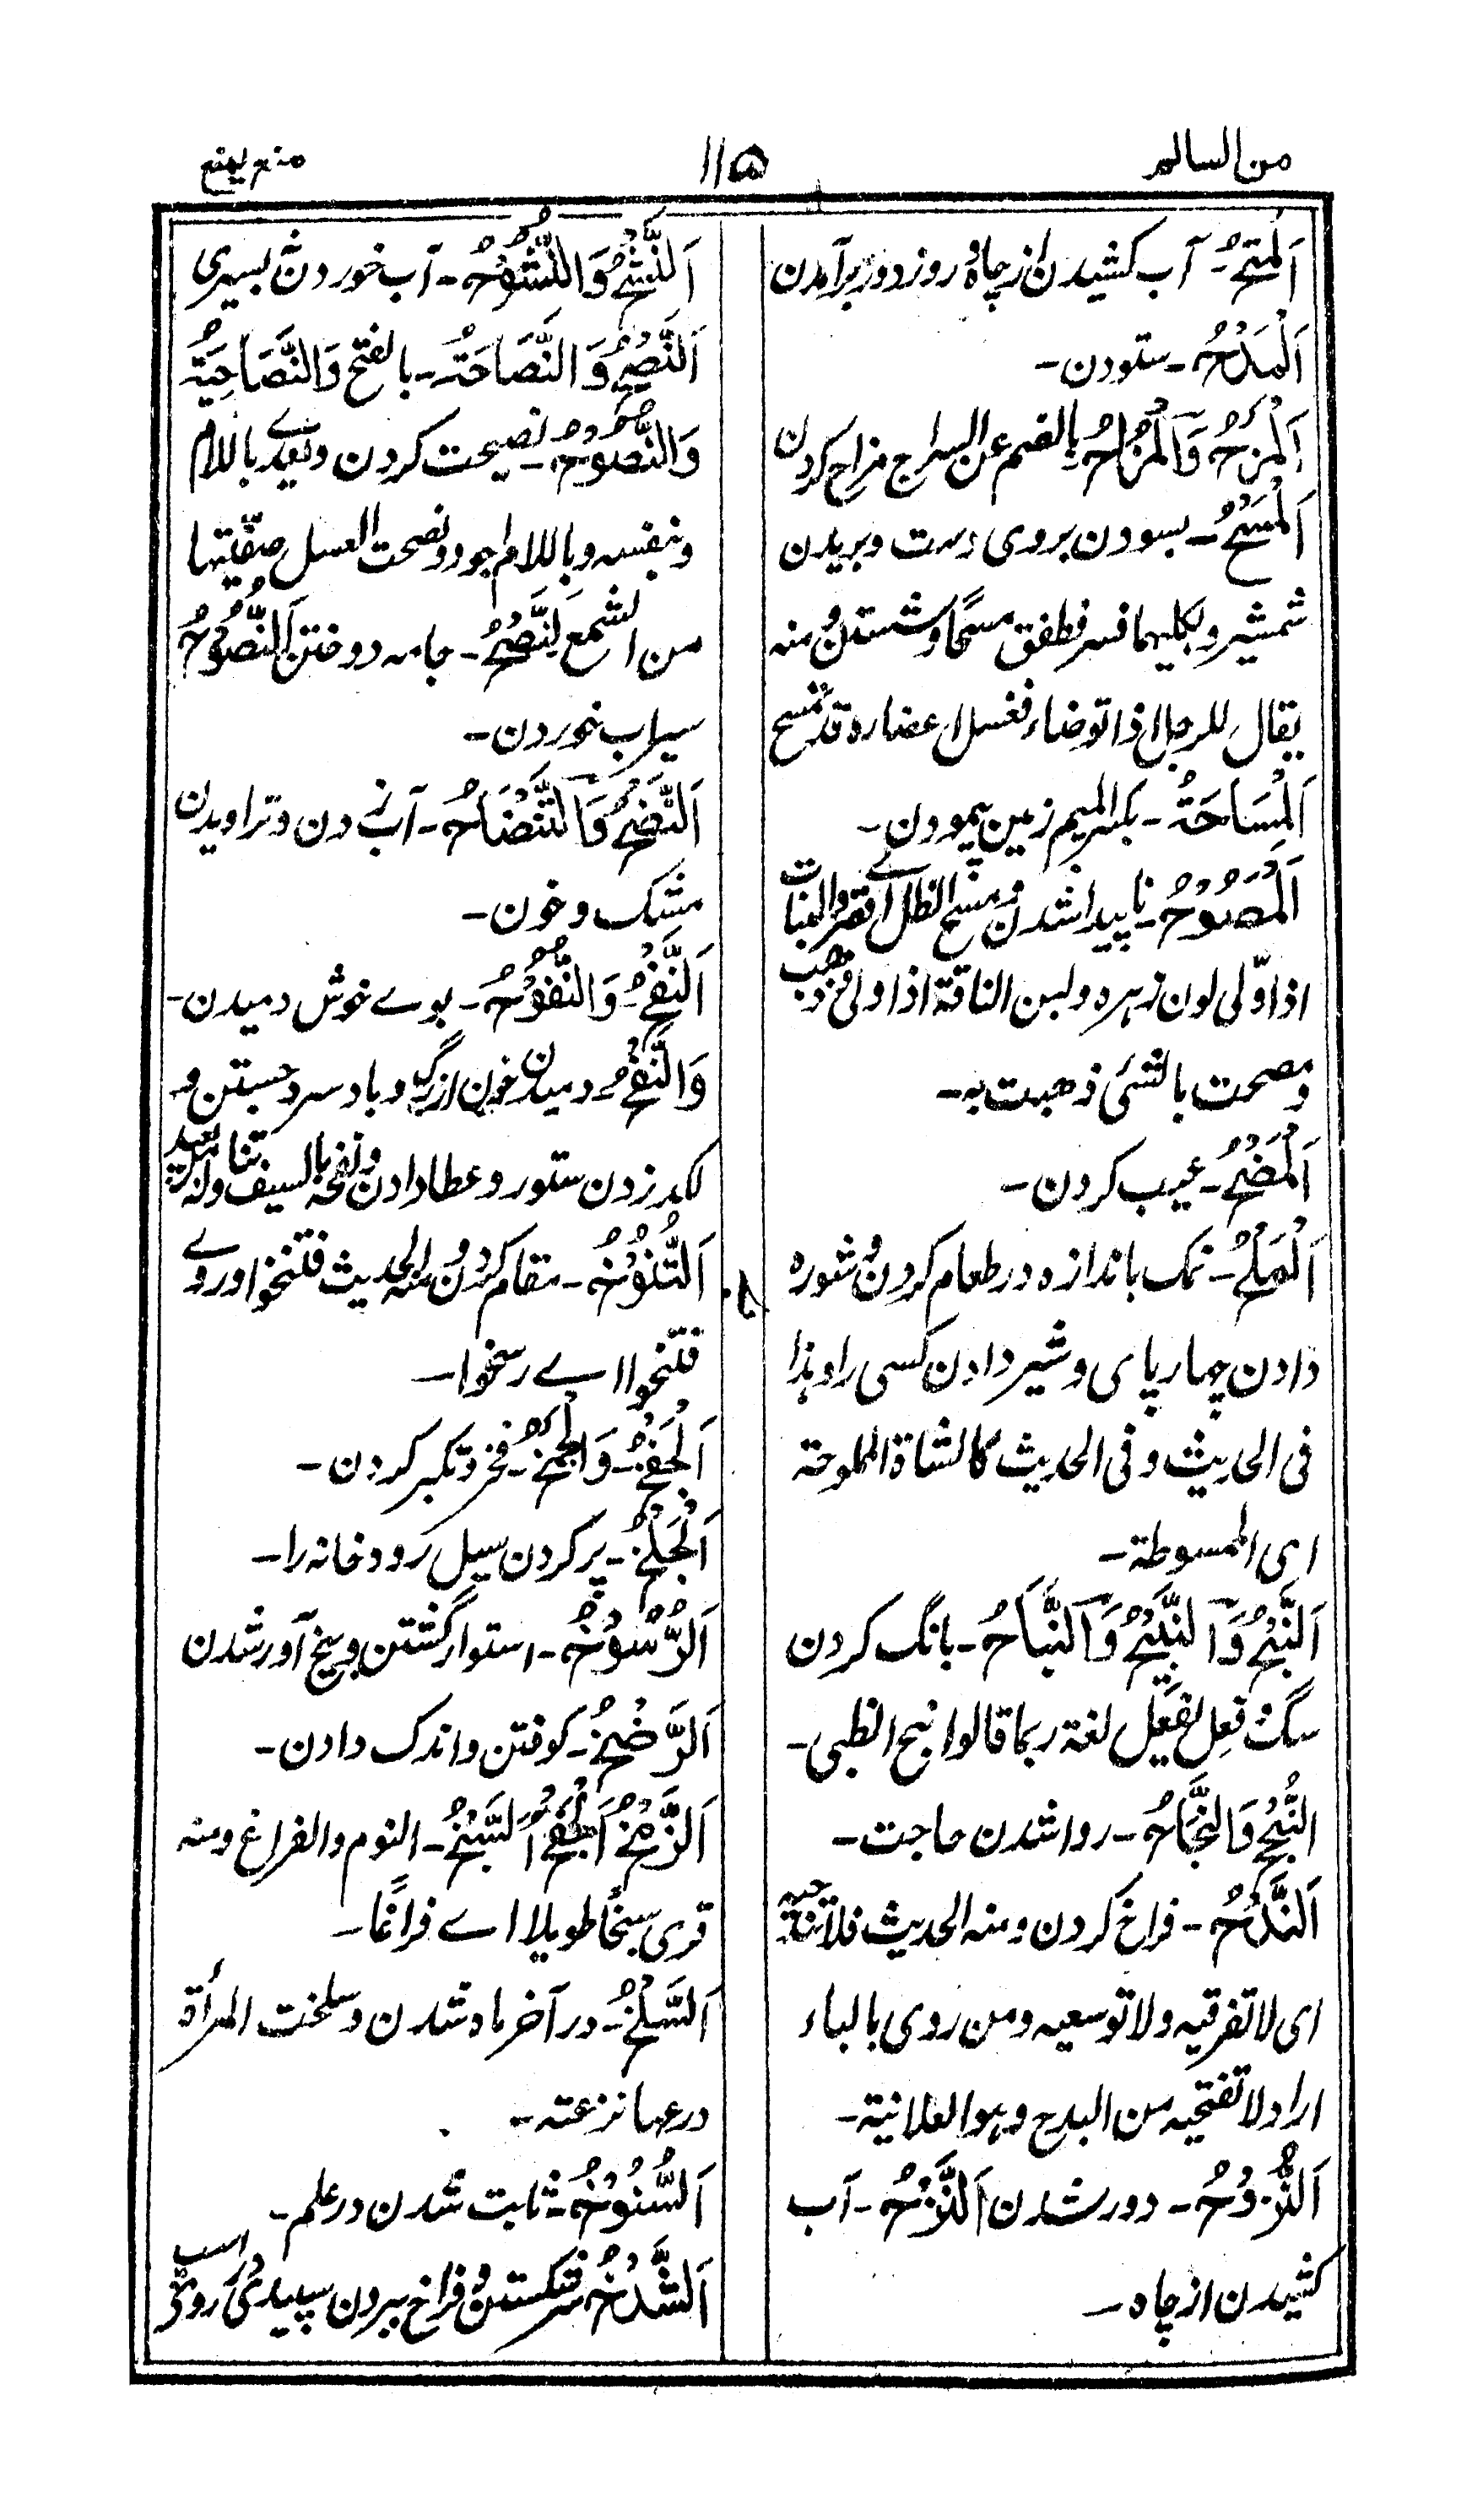 من السالم
۱۱۵
منع یمنع
اَلْمَتْحُ۔ آب کشیدن از چاه و روز دور برآمدن
اَلْمَدْحُ۔ ستودن۔
اَلْمَزْحُ وَالْمُزَاحُ بالضم عن السراج مزاح کردن
اَلْمَسْحُ۔ بسودن بروی دست و بریدن
شمشیر و بکلیهما فسر فطفق مسحًا و شستن و منه
یقال للرجل اذا توضاء فغسل اعضاره قد تمسح
اَلْمِسَاحَةُ۔ بکسر المیم زمین پیمودن۔
اَلْمُصُوْحُ۔ ناپیدا شدن و مصح الظل اے قصر والنبات
اذا ولّی لون زهره ولبن الناقة اذا ولی و ذهب
و مصحت بالشئ ذهبت به۔
اَلْمَضْحُ۔ عیب کردن۔
اَلْمَلْحُ۔ نمک باندازه در طعام کردن و شوره
دادن چهارپای و شیر دادن کسی را و هذا
فی الحدیث و فی الحدیث کالشاة المملوحة
ای المسوطة۔
اَلنَّبْحُ وَالنَّبِیْحُ وَالنُّبَاحُ۔ بانگ کردن
سگ و فعل یفعل لغة ربما قالوا نبح الظبی۔
النُّجْحُ وَالنَّجَاحُ۔ روا شدن حاجت۔
اَلنَّدْحُ۔ فراخ کردن و منه الحدیث فلا تندحیه
ای لا تفرقیه ولا توسعیه و من روی بالباء
اراد لا تفتحیه من البدح و هو العلانیة۔
اَلنُّزُوْحُ۔ دور شدن اَلنَّزْحُ۔ آب
کشیدن از چاه۔
اَلنَّشْحُ وَالنُّشُوْحُ۔ آب خوردن نه بسیری
اَلنُّصْحُ وَالنَّصَاحَةُ۔ بالفتح وَالنَّصَاحِیَةُ
وَالنُّصُوْحُ۔ نصیحت کردن و یعدے باللام
و بنفسه و باللام اجود و نصحت العسل صفیتها
من الشمع اَلنَّصْحُ۔ جامه دوختن اَلنُّصُوْحُ
سیراب خوردن۔
اَلنَّضْحُ وَالتَّنْضَاحُ۔ آب زدن و تراویدن
مشک و خون۔
اَلنَّفْحُ وَالنُّفُوْحُ۔ بوے خوش دمیدن۔
وَالنَّفْحُ دمیدن خون از رگ و باد سرد جستن و
لکد زدن ستور و عطا دادن و نفحه بالسیف تناوله
اَلتُّنُوْخُ۔ مقام کردن و منه الحدیث فتنخوا و روے
فنتخوا اے رسخوا۔
اَلْجَفْخُ۔ وَالْجَمْخُ۔ فخر و تکبر کردن۔
اَلْجَلْخُ۔ پر کردن سیل رودخانه را۔
اَلرُّسُوْخُ۔ استوار گشتن و بیخ آور شدن
اَلرَّضْخُ۔ کوفتن و اندک دادن۔
اَلزَّمْخُ اَلْجَفْخُ اَلسَّبْخُ۔ النوم والفراغ و منه
قری سبخًا طویلا اے فراغًا۔
اَلسَّلْخُ۔ در آخر ماه شدن و سلخت المرأة
درعها نزعته۔
اَلسُّنُوْخُ۔ ثابت شدن در علم۔
اَلشَّدْخُ شکستن و فراخ ببردن سپیدی روی اسب